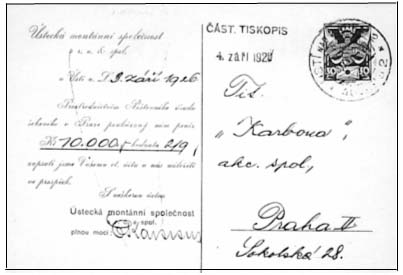 Ústecká montánní společnost
s r. o. & spol.
v Ústí n. L. 3. září 1926
Prostřednictvím Poštovního úřadu
šekového v Praze poukázaný nám peníz
Kč 10.000,- hodnota 2/9
zapsali jsme Vašemu ct. účtu u nás
ve prospěch.
S veškerou úctou
Ústecká montánní společnost
s r. o. spol.
plnou moci:
ČÁST. TISKOPIS
4. září 1926
10 10
Tit.
„Karbona",
akc. spol,
Praha II
Sokolská 28.